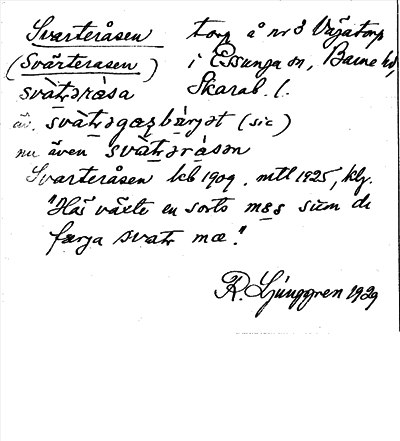 Svarteråsen torp å nr 8 Vägatorp
(Svärterasen) i Essunga sn, Barne hd,
svàtərása Skarab. l.
äv. svàtəgaʒbärjət (sic)
nu även svàtəråsən
Svarteråsen kb 1909, mtl 1925, klj.
"Här växte en sorts mɛs sum di
færja svatr mæ."
R. Ljunggren 1929